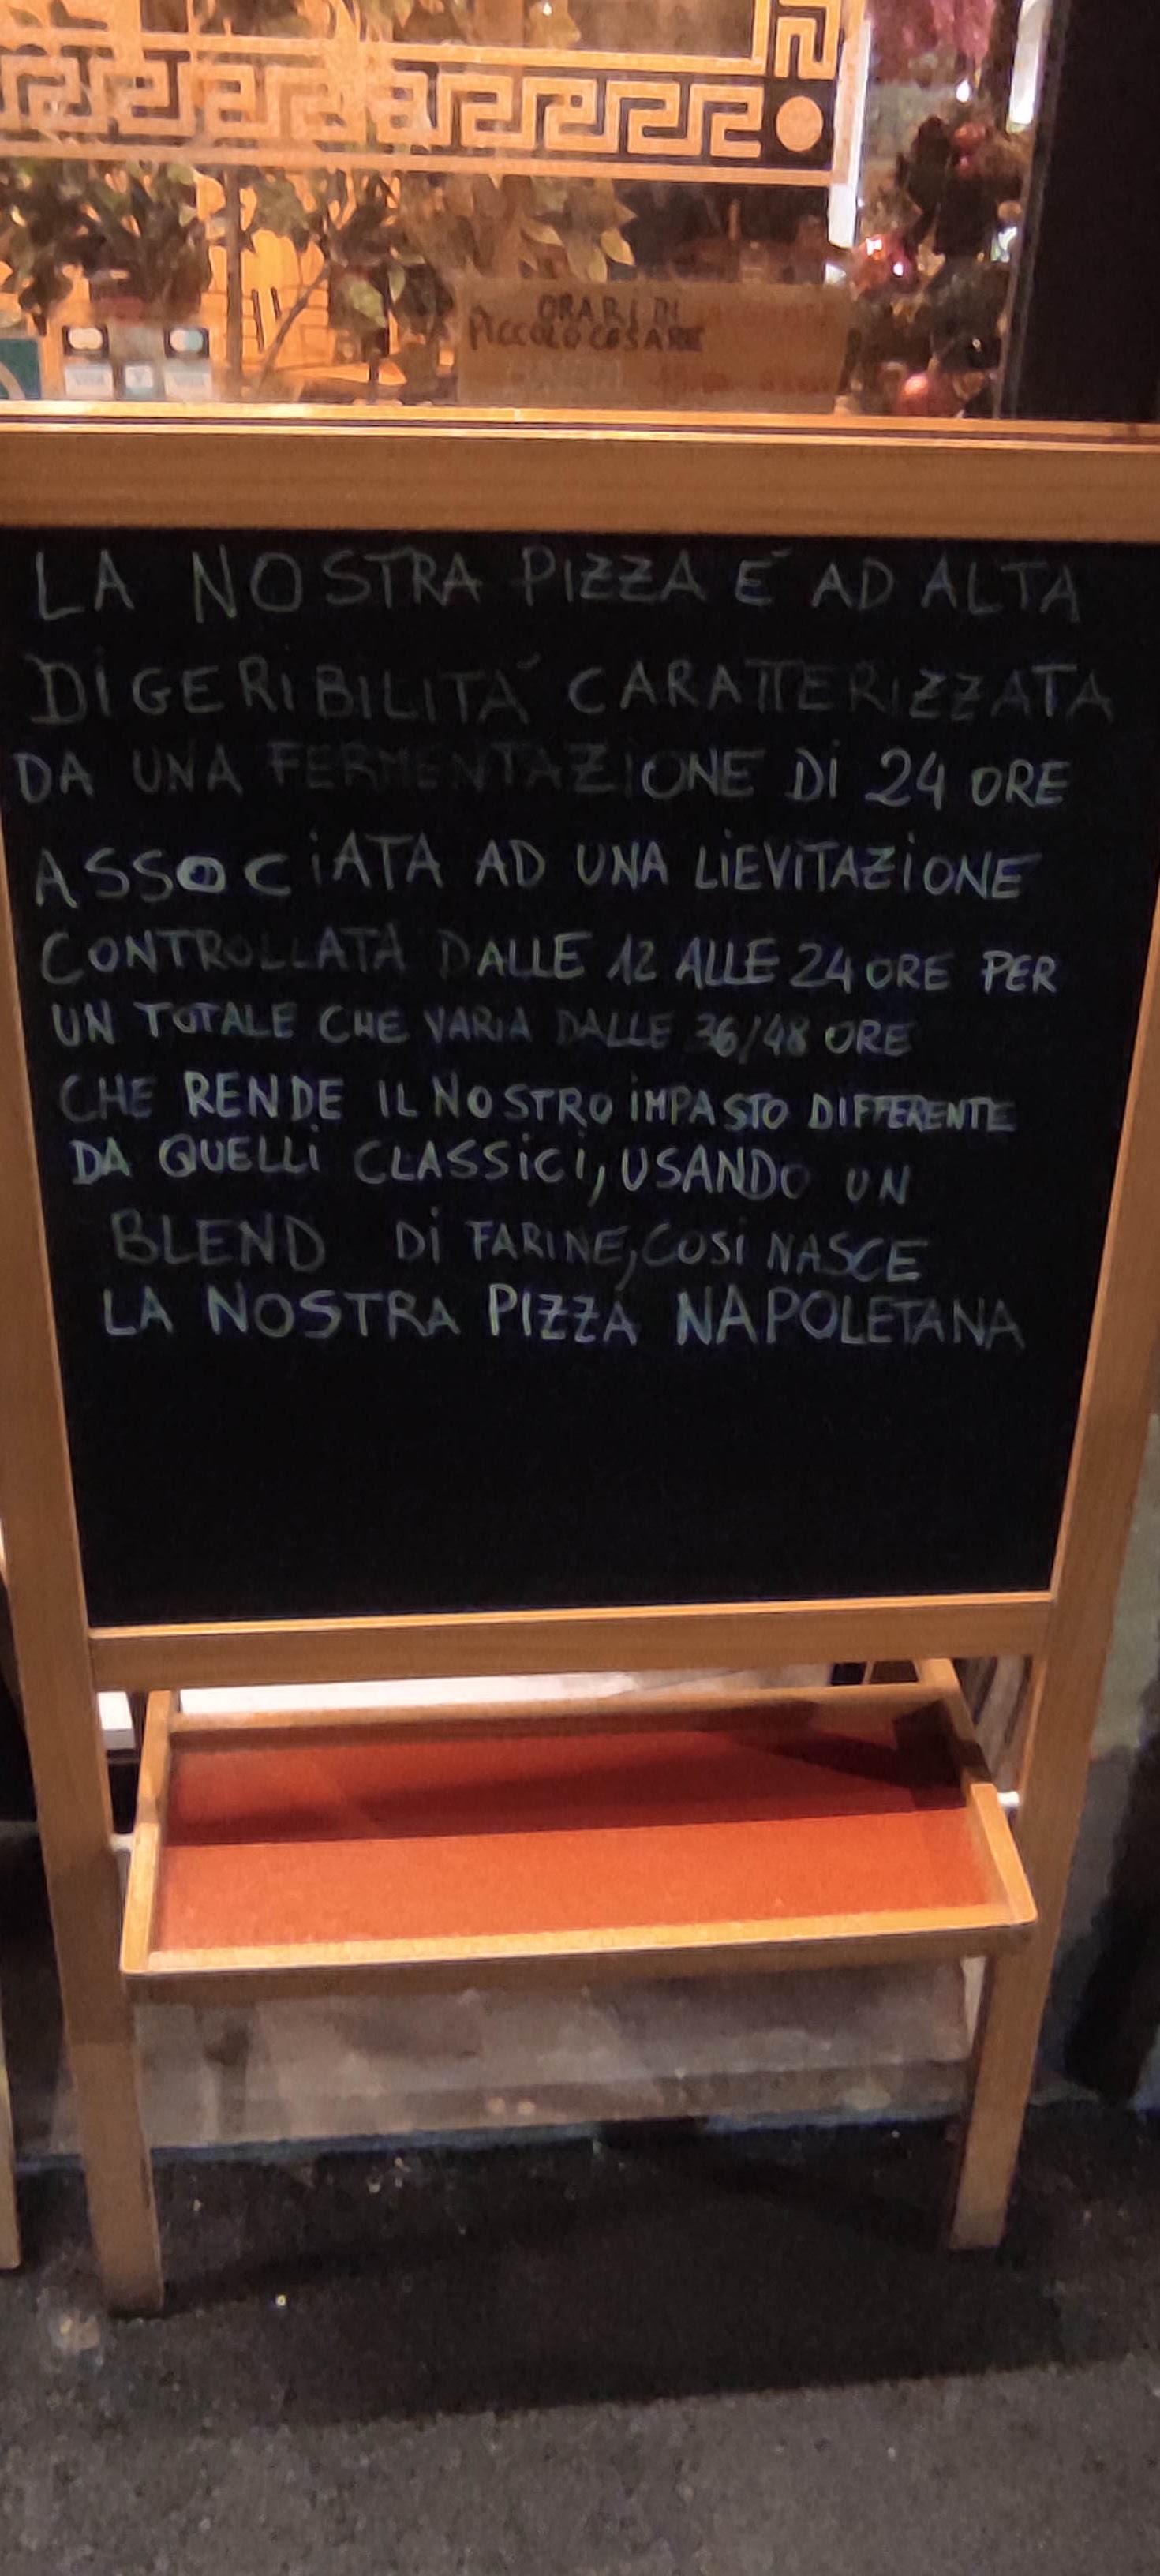 ORARI DI
PICCOLO CESARE
LA NOSTRA PIZZA É AD ALTA
DIGERIBILITÁ CARATTERIZZATA
DA UNA FERMENTAZIONE DI 24 ORE
ASSOCIATA AD UNA LIEVITAZIONE
CONTROLLATA DALLE 12 ALLE 24 ORE PER
UN TOTALE CHE VARIA DALLE 36/48 ORE
CHE RENDE IL NOSTRO IMPASTO DIFFERENTE
DA QUELLI CLASSICI, USANDO UN
BLEND DI FARINE, COSI NASCE
LA NOSTRA PIZZA NAPOLETANA